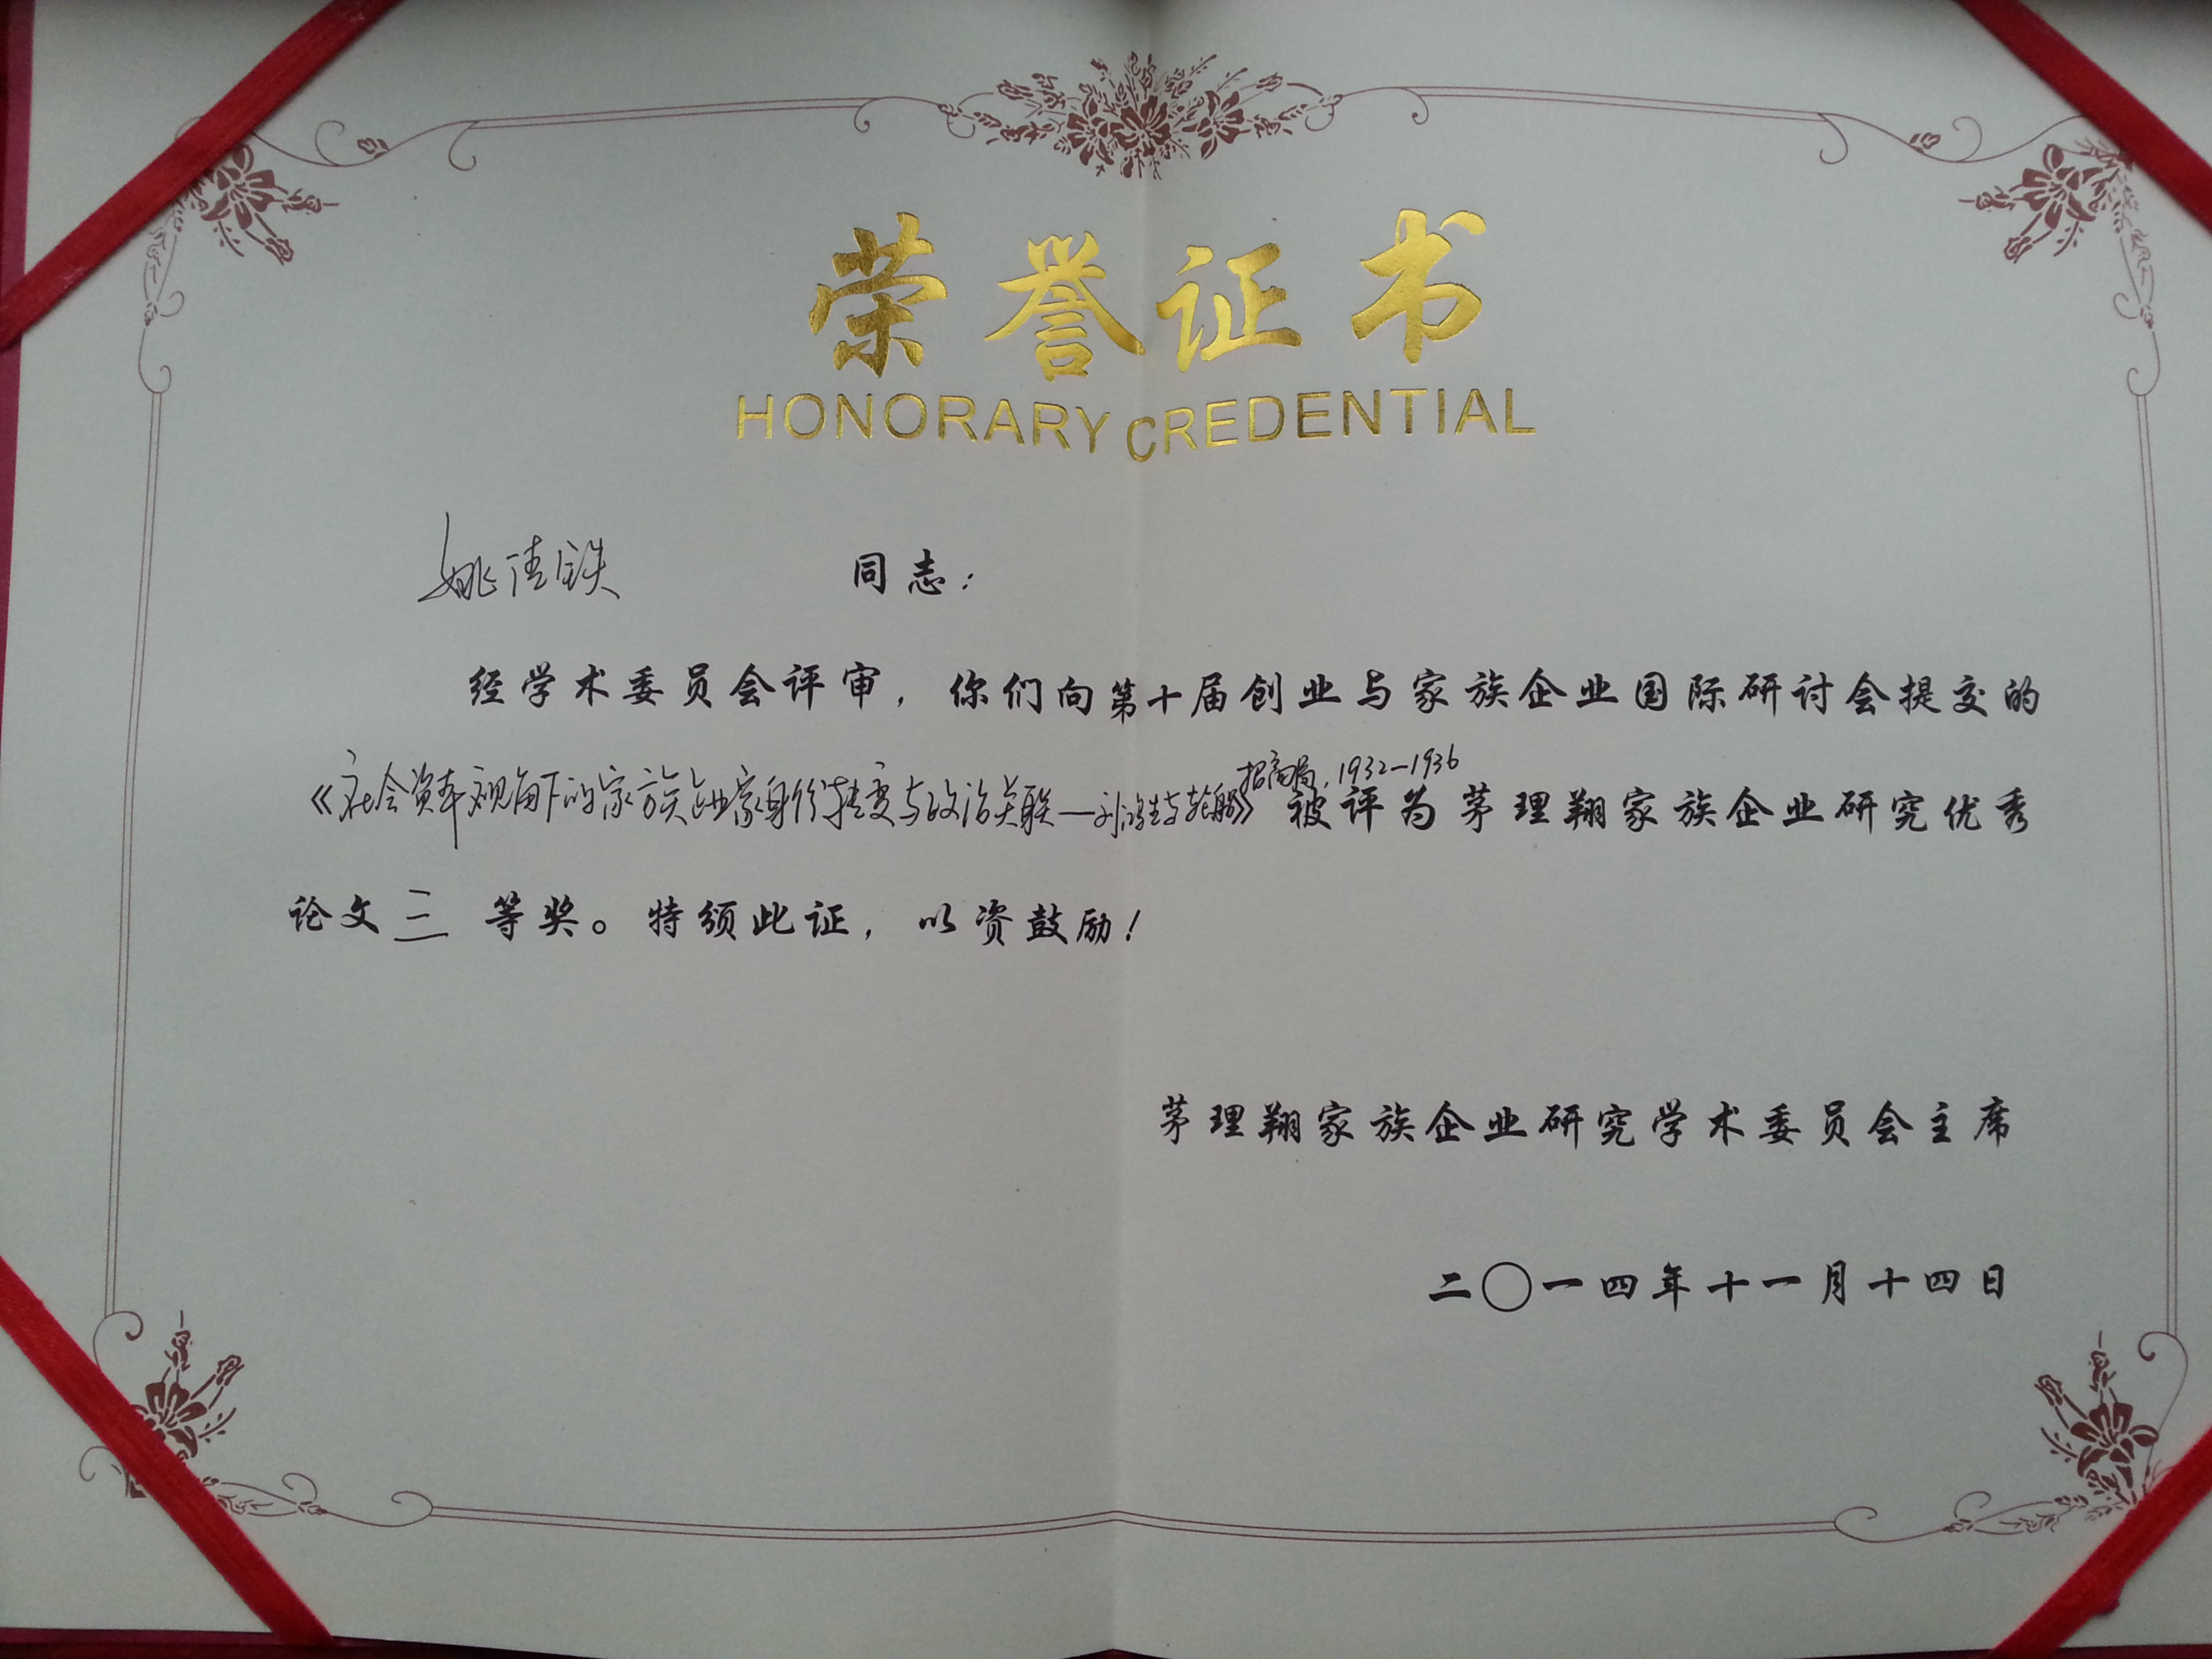 荣誉证书
HONORARY CREDENTIAL
姚清铁 同志：
经学术委员会评审，你们向第十届创业与家族企业国际研讨会提交的
《社会资本视角下的家族企业家身份转变与政治关联—刘鸿生与轮船招商局，1932-1936》被评为茅理翔家族企业研究优秀
论文三等奖。特颁此证，以资鼓励！
茅理翔家族企业研究学术委员会主席
二〇一四年十一月十四日